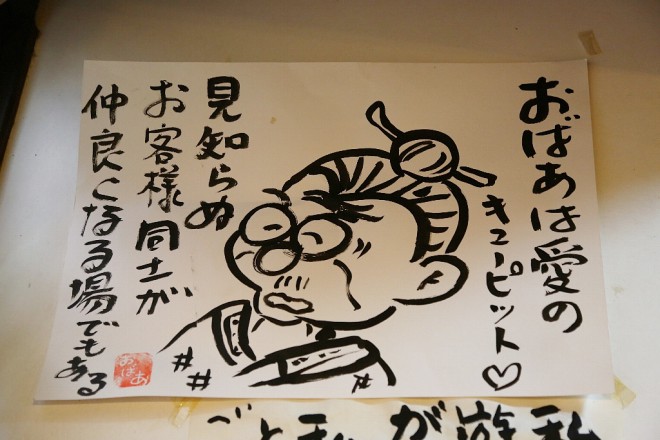 おばあは愛の
キューピット♡
見知らぬ
お客様同士が
仲良くなる場でもある
おばあ
私
遊
が